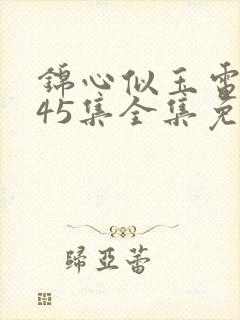 錦心似玉電
45集全集免
歸亞蕾